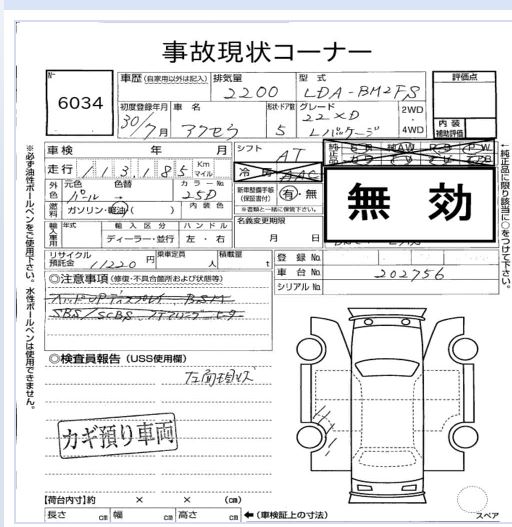 事故現状コーナー
No
6034
車歴 (自家用以外は記入) 排気量 2200
型式 LDA-BM2FS
評価点
初度登録年月 30年/7月
車名 アクセラ
形状・ドア数 5
グレード 22XD Lパケージ
2WD・4WD
内装補助評価
車検 年 月
走行 113,185 Km マイル
シフト AT
冷房 AAC
外色 元色 パール → 色替
カラーNo. 25D
燃料 ガソリン・軽油・( )
内装色
新車整備手帳(保証書付) 有・無
※書類と一緒に保管して下さい。
無効
輸入車用 年式 輸入区分 ディーラー・並行
ハンドル 左・右
名義変更期限 月 日
リサイクル預託金 11220円
乗車定員 人
積載量 t
登録No.
車台No. 202756
シリアルNo.
◎注意事項 (修復・不具合箇所および状態等)
SBS/SCBS ステアリングヒーター
◎検査員報告 (USS使用欄)
左面現状
カギ預り車両
【荷台内寸】約 × × (cm)
長さ cm 幅 cm 高さ cm ←(車検証上の寸法)
スペア
※必ず油性ボールペンをご使用下さい。水性ボールペンは使用できません。
←純正品に限り該当に○をつけて下さい。